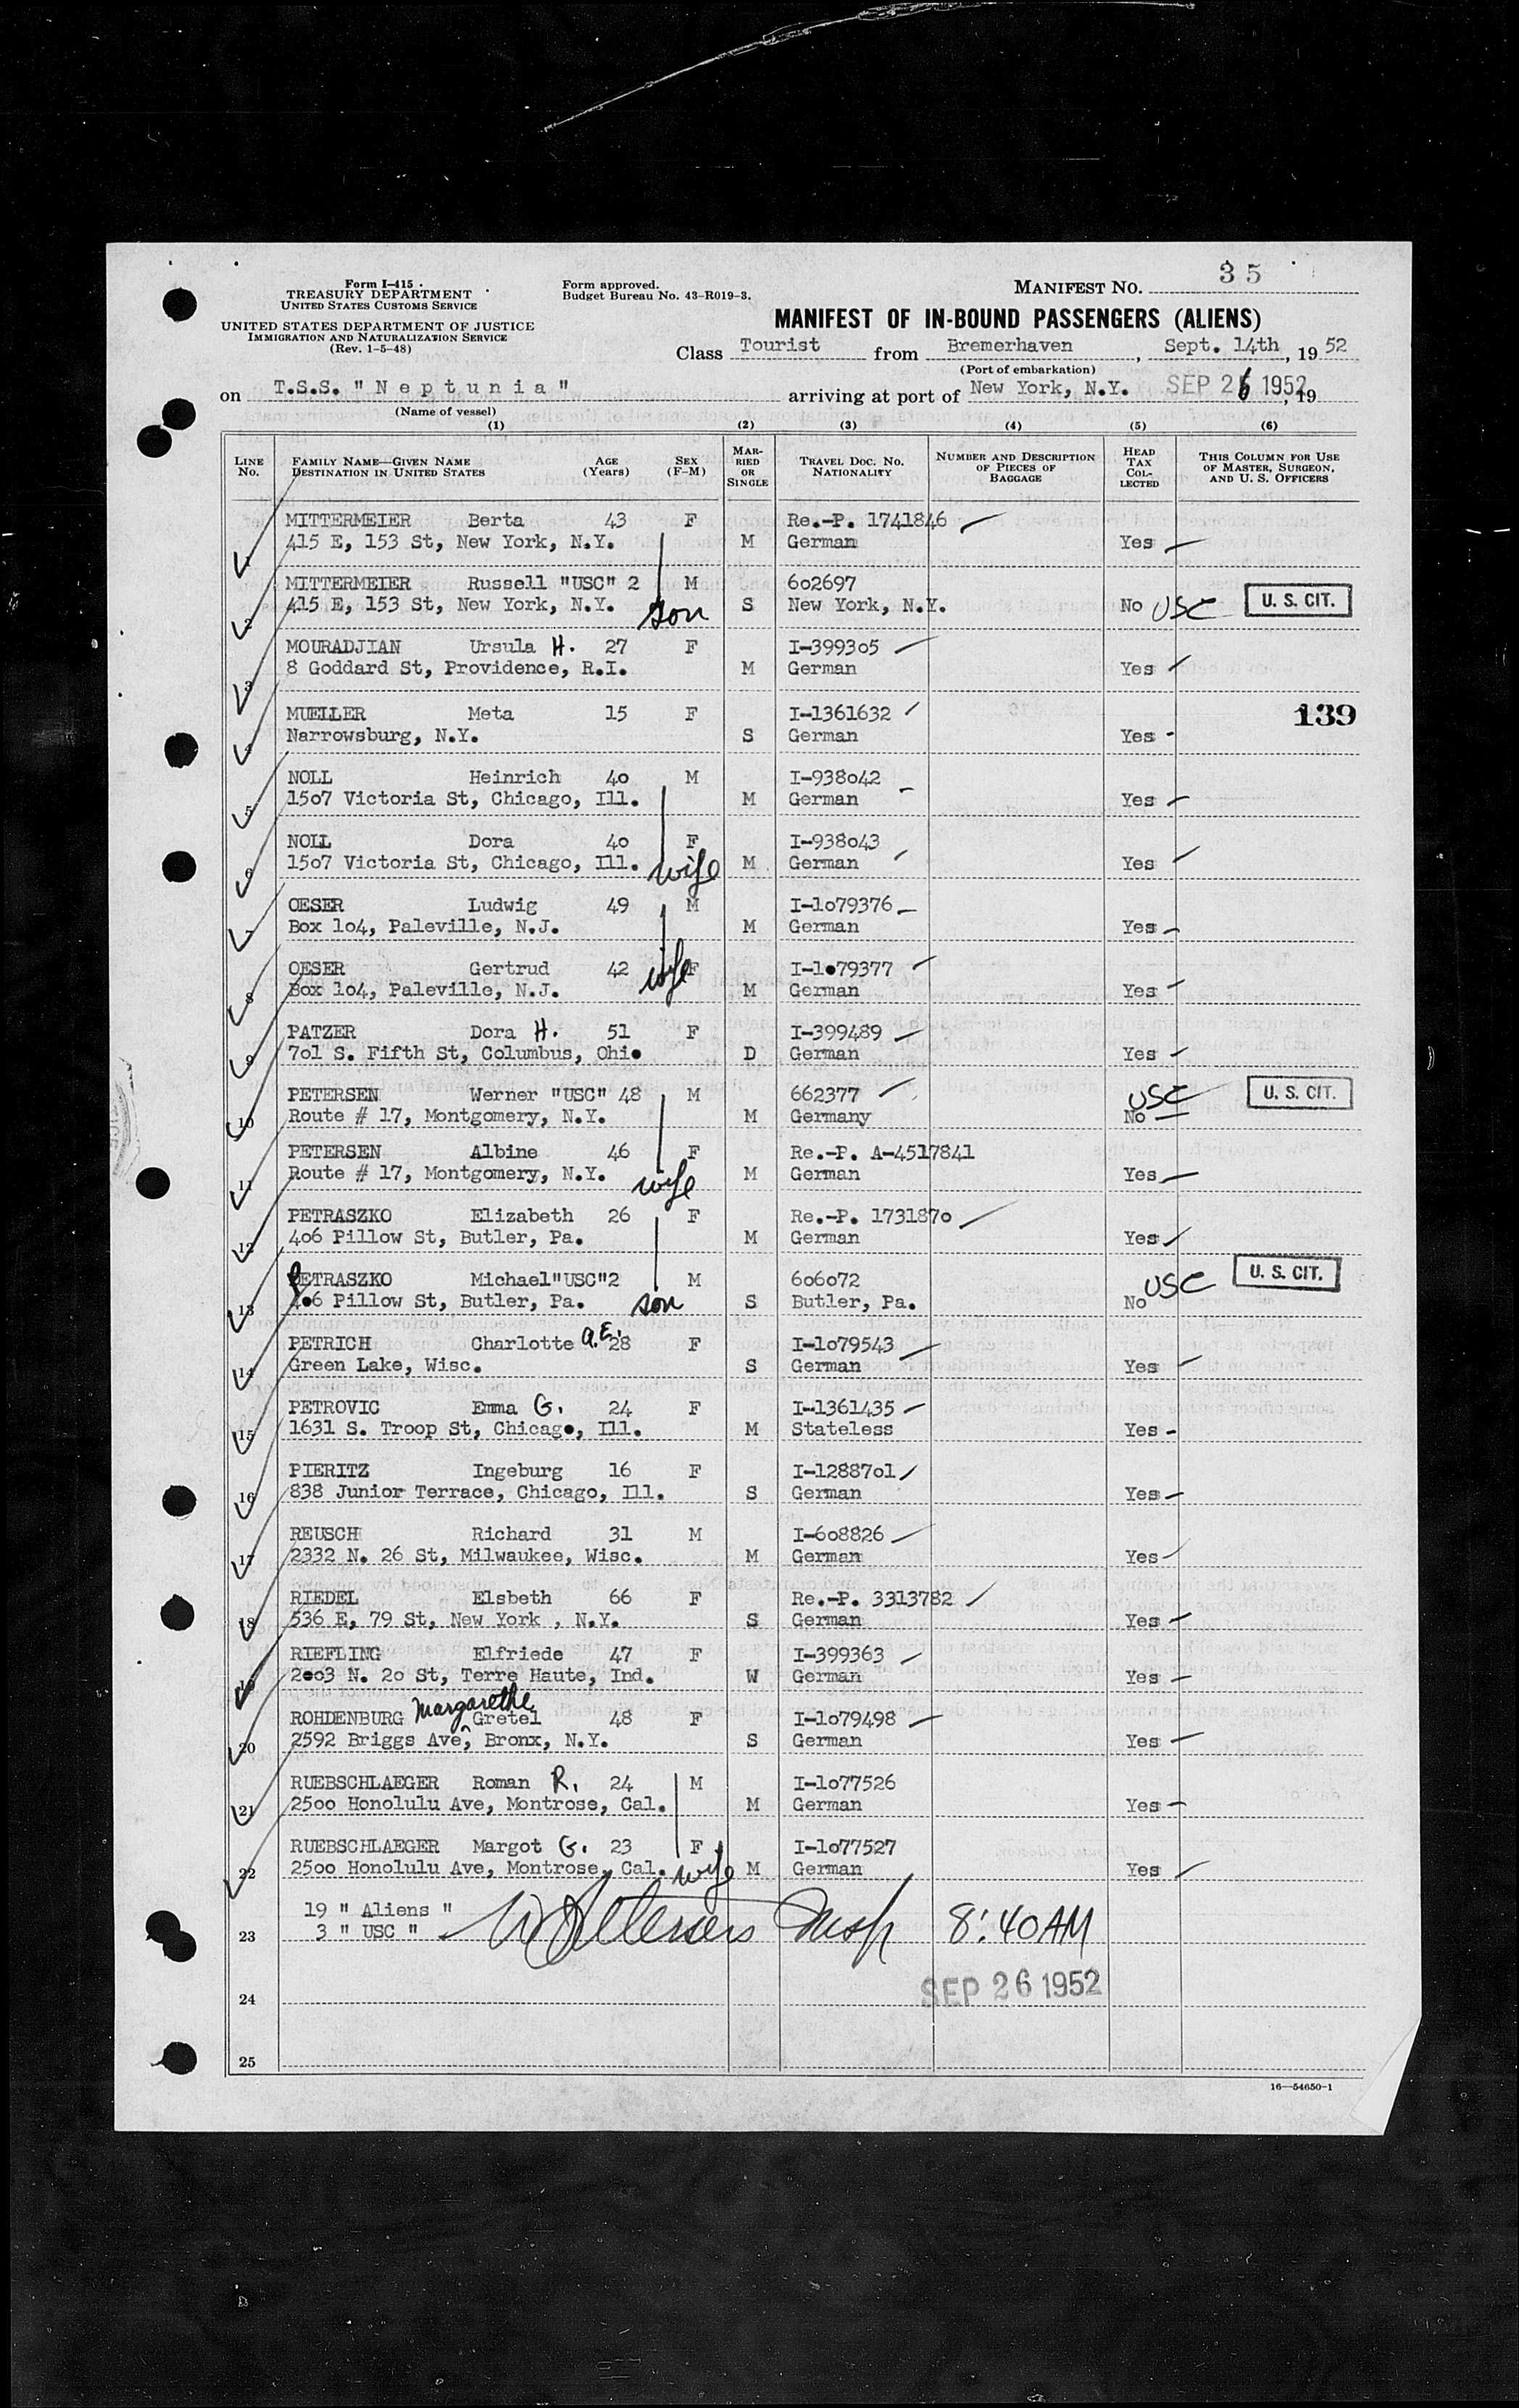 35
Form I-415
TREASURY DEPARTMENT
UNITED STATES CUSTOMS SERVICE
UNITED STATES DEPARTMENT OF JUSTICE
IMMIGRATION AND NATURALIZATION SERVICE
(Rev. 1-5-48)
Form approved.
Budget Bureau No. 43-R019-3.
MANIFEST NO.
MANIFEST OF IN-BOUND PASSENGERS (ALIENS)
Class Tourist from Bremerhaven, Sept. 14th, 19 52
(Port of embarkation)
on T.S.S. "Neptunia" arriving at port of New York, N.Y. SEP 26 1952, 19
(Name of vessel)
(1) (2) (3) (4) (5) (6)
LINE NO. FAMILY NAME—GIVEN NAME DESTINATION IN UNITED STATES AGE (Years) SEX (F-M) MARRIED OR SINGLE TRAVEL DOC. NO. NATIONALITY NUMBER AND DESCRIPTION OF PIECES OF BAGGAGE HEAD TAX COLLECTED THIS COLUMN FOR USE OF MASTER, SURGEON, AND U. S. OFFICERS
MITTERMEIER Berta 43 F Re.-P. 1741846
1 415 E, 153 St, New York, N.Y. M German Yes
MITTERMEIER Russell "USC" 2 M 602697
2 415 E, 153 St, New York, N.Y. son S New York, N.Y. No USC U. S. CIT.
MOURADJIAN Ursula H. 27 F I-399305
3 8 Goddard St, Providence, R.I. M German Yes
MUELLER Meta 15 F I-1361632 139
4 Narrowsburg, N.Y. S German Yes
NOLL Heinrich 40 M I-938042
5 1507 Victoria St, Chicago, Ill. M German Yes
NOLL Dora 40 F I-938043
6 1507 Victoria St, Chicago, Ill. wife M German Yes
OESER Ludwig 49 M I-1079376
7 Box 104, Paleville, N.J. M German Yes
OESER Gertrud 42 wife F I-1079377
8 Box 104, Paleville, N.J. M German Yes
PATZER Dora H. 51 F I-399489
9 701 S. Fifth St, Columbus, Ohio D German Yes
PETERSEN Werner "USC" 48 M 662377 USC U. S. CIT.
10 Route # 17, Montgomery, N.Y. M Germany No
PETERSEN Albine 46 F Re.-P. A-4517841
11 Route # 17, Montgomery, N.Y. wife M German Yes
PETRASZKO Elizabeth 26 F Re.-P. 1731870
12 406 Pillow St, Butler, Pa. M German Yes
PETRASZKO Michael "USC" 2 M 606072 USC U. S. CIT.
13 406 Pillow St, Butler, Pa. son S Butler, Pa. No
PETRICH Charlotte A.E. 28 F I-1079543
14 Green Lake, Wisc. S German Yes
PETROVIC Emma G. 24 F I-1361435
15 1631 S. Troop St, Chicago, Ill. M Stateless Yes
PIERITZ Ingeburg 16 F I-1288701
16 838 Junior Terrace, Chicago, Ill. S German Yes
REUSCH Richard 31 M I-608826
17 2332 N. 26 St, Milwaukee, Wisc. M German Yes
RIEDEL Elsbeth 66 F Re.-P. 3313782
18 536 E, 79 St, New York , N.Y. S German Yes
RIEFLING Elfriede 47 F I-399363
19 2003 N. 20 St, Terre Haute, Ind. W German Yes
Margarethe
ROHDENBURG Gretel 48 F I-1079498
20 2592 Briggs Ave, Bronx, N.Y. S German Yes
RUEBSCHLAEGER Roman R. 24 M I-1077526
21 2500 Honolulu Ave, Montrose, Cal. M German Yes
RUEBSCHLAEGER Margot G. 23 F I-1077527
22 2500 Honolulu Ave, Montrose, Cal. wife M German Yes
19 " Aliens "
23 3 " USC " Insp 8:40 AM
SEP 26 1952
24
25
16—54650-1